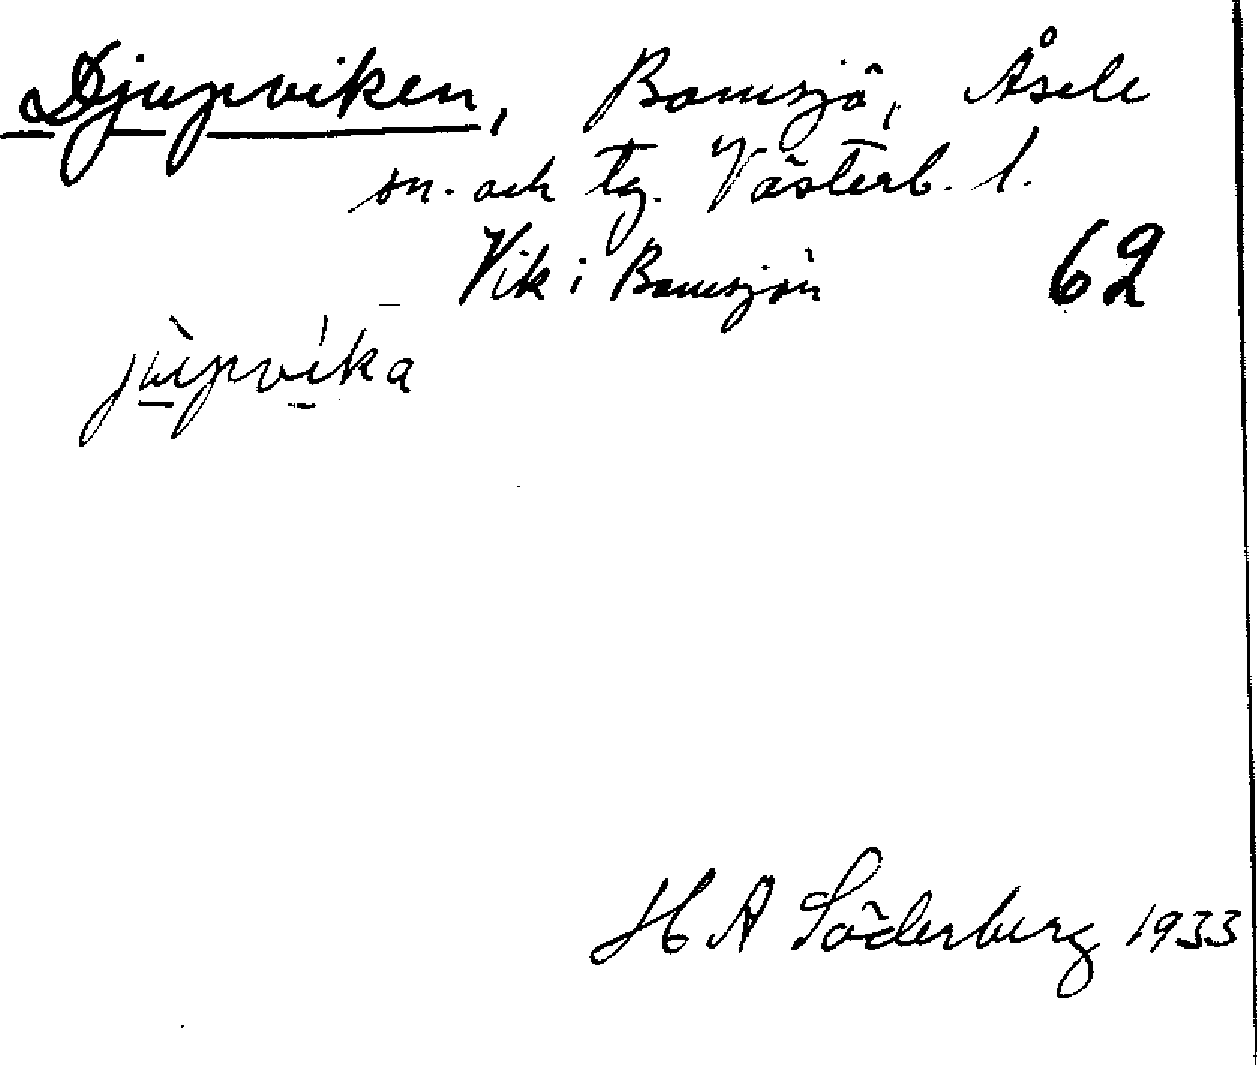 Djupviken, Bomsjö, Åsele
sn. och tg. Västerb. l.
Vik i Bomsjön 62
jùpvíka
H A Söderberg 1933